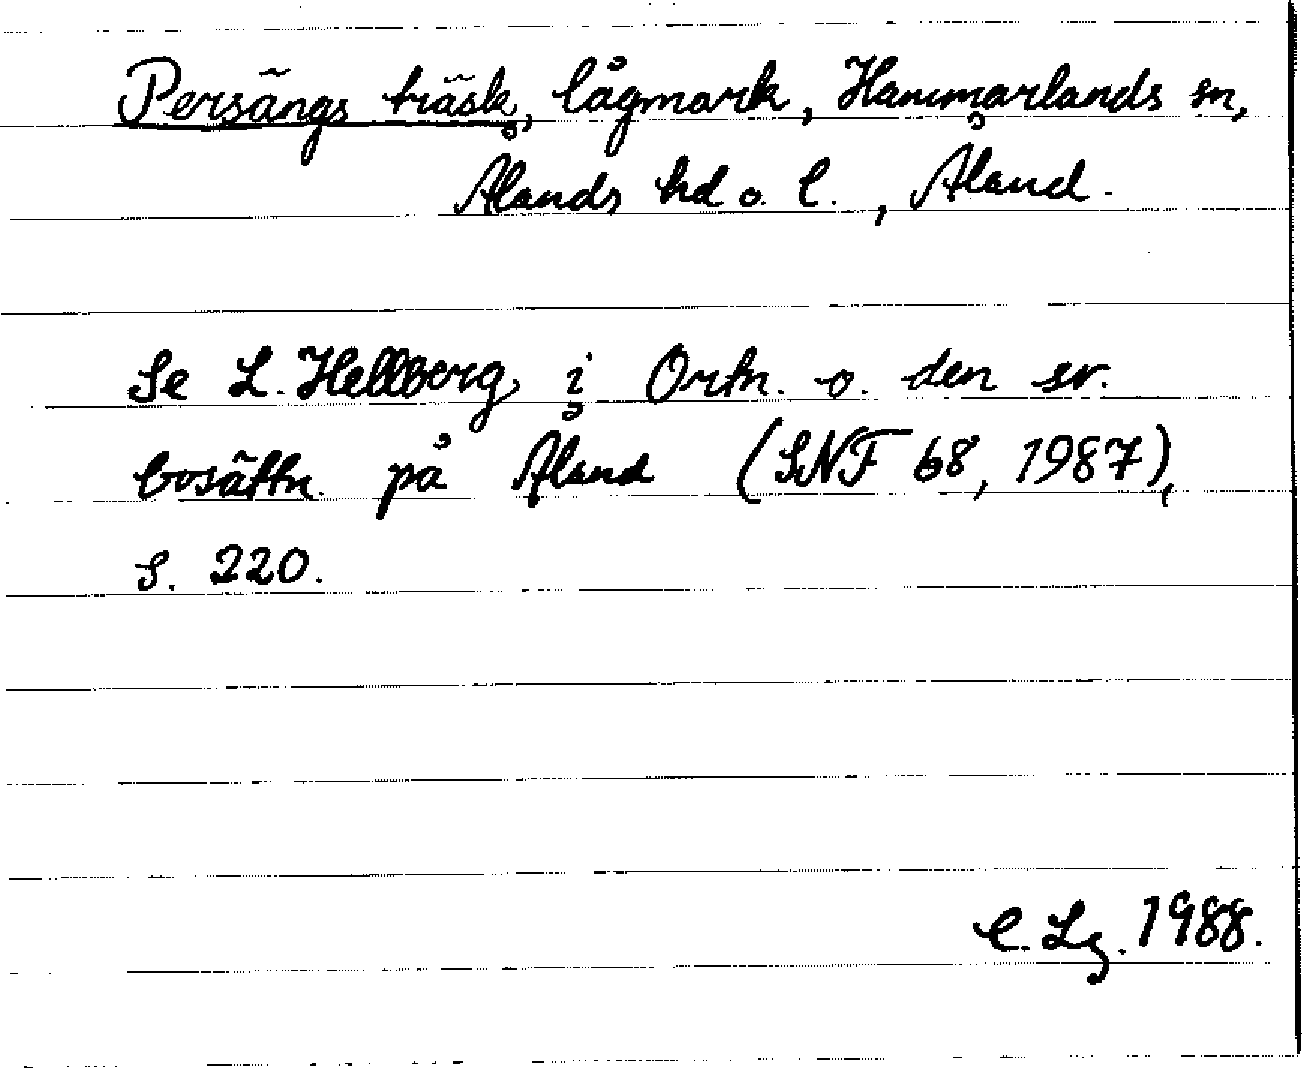 Persängs träsk, lågmark, Hammarlands sn,
Ålands hd o. l., Åland.
Se L. Hellberg i Ortn. o. den sv.
bosättn. på Åland (SNF 68, 1987),
s. 220.
C. Lg. 1988.